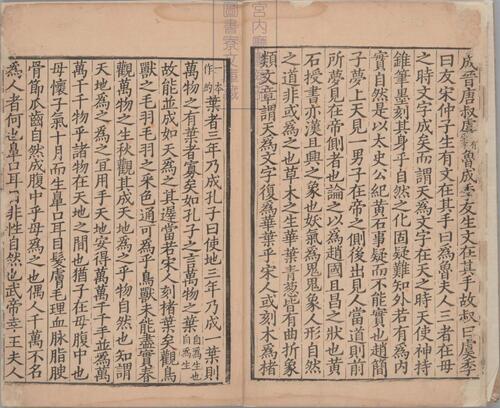 成晉唐叔虞魯成季友生文在其手故叔曰虞季
曰友宋仲子生有文在其手曰為魯夫人三者在母
之時文字成矣而謂天為文字在天之時天神持
錐筆墨刻其身乎自然之化固疑難知外若有為內
實自然是以太史公紀黃石事疑而不能實也趙簡
子夢上天見一男子在帝之側後出見人當道則前
所夢見在帝側者也論之以為趙國且昌之狀也黃
石授書亦漢且興之象也妖氣為鬼鬼象人形自然
之道非或為之也草木之生華葉青葱皆有曲折象
類文章謂天為文字復為華葉乎宋人或刻木為楮
一本作約葉者三年乃成孔子曰使地三年乃成一葉則
萬物之有葉者寡矣如孔子之言萬物之葉自為生也自為生
故能並成如天為之其遲當若宋人刻楮葉矣觀鳥
獸之毛羽毛羽之采色通可為乎鳥獸未能盡實春
觀萬物之生秋觀其成天地為之乎物自然也如謂
天地為之為之宜用手天地安得萬萬千千手並為萬
萬千千物乎諸物在天地之間也猶子在母腹中也
母懷子氣十月而生鼻口耳目髮膚毛理血脉脂腴
骨節爪齒自然成腹中乎母為之也偶人千萬不名
為人者何也鼻口耳目非性自然也武帝幸王夫人
宮內廳
圖書寮文庫